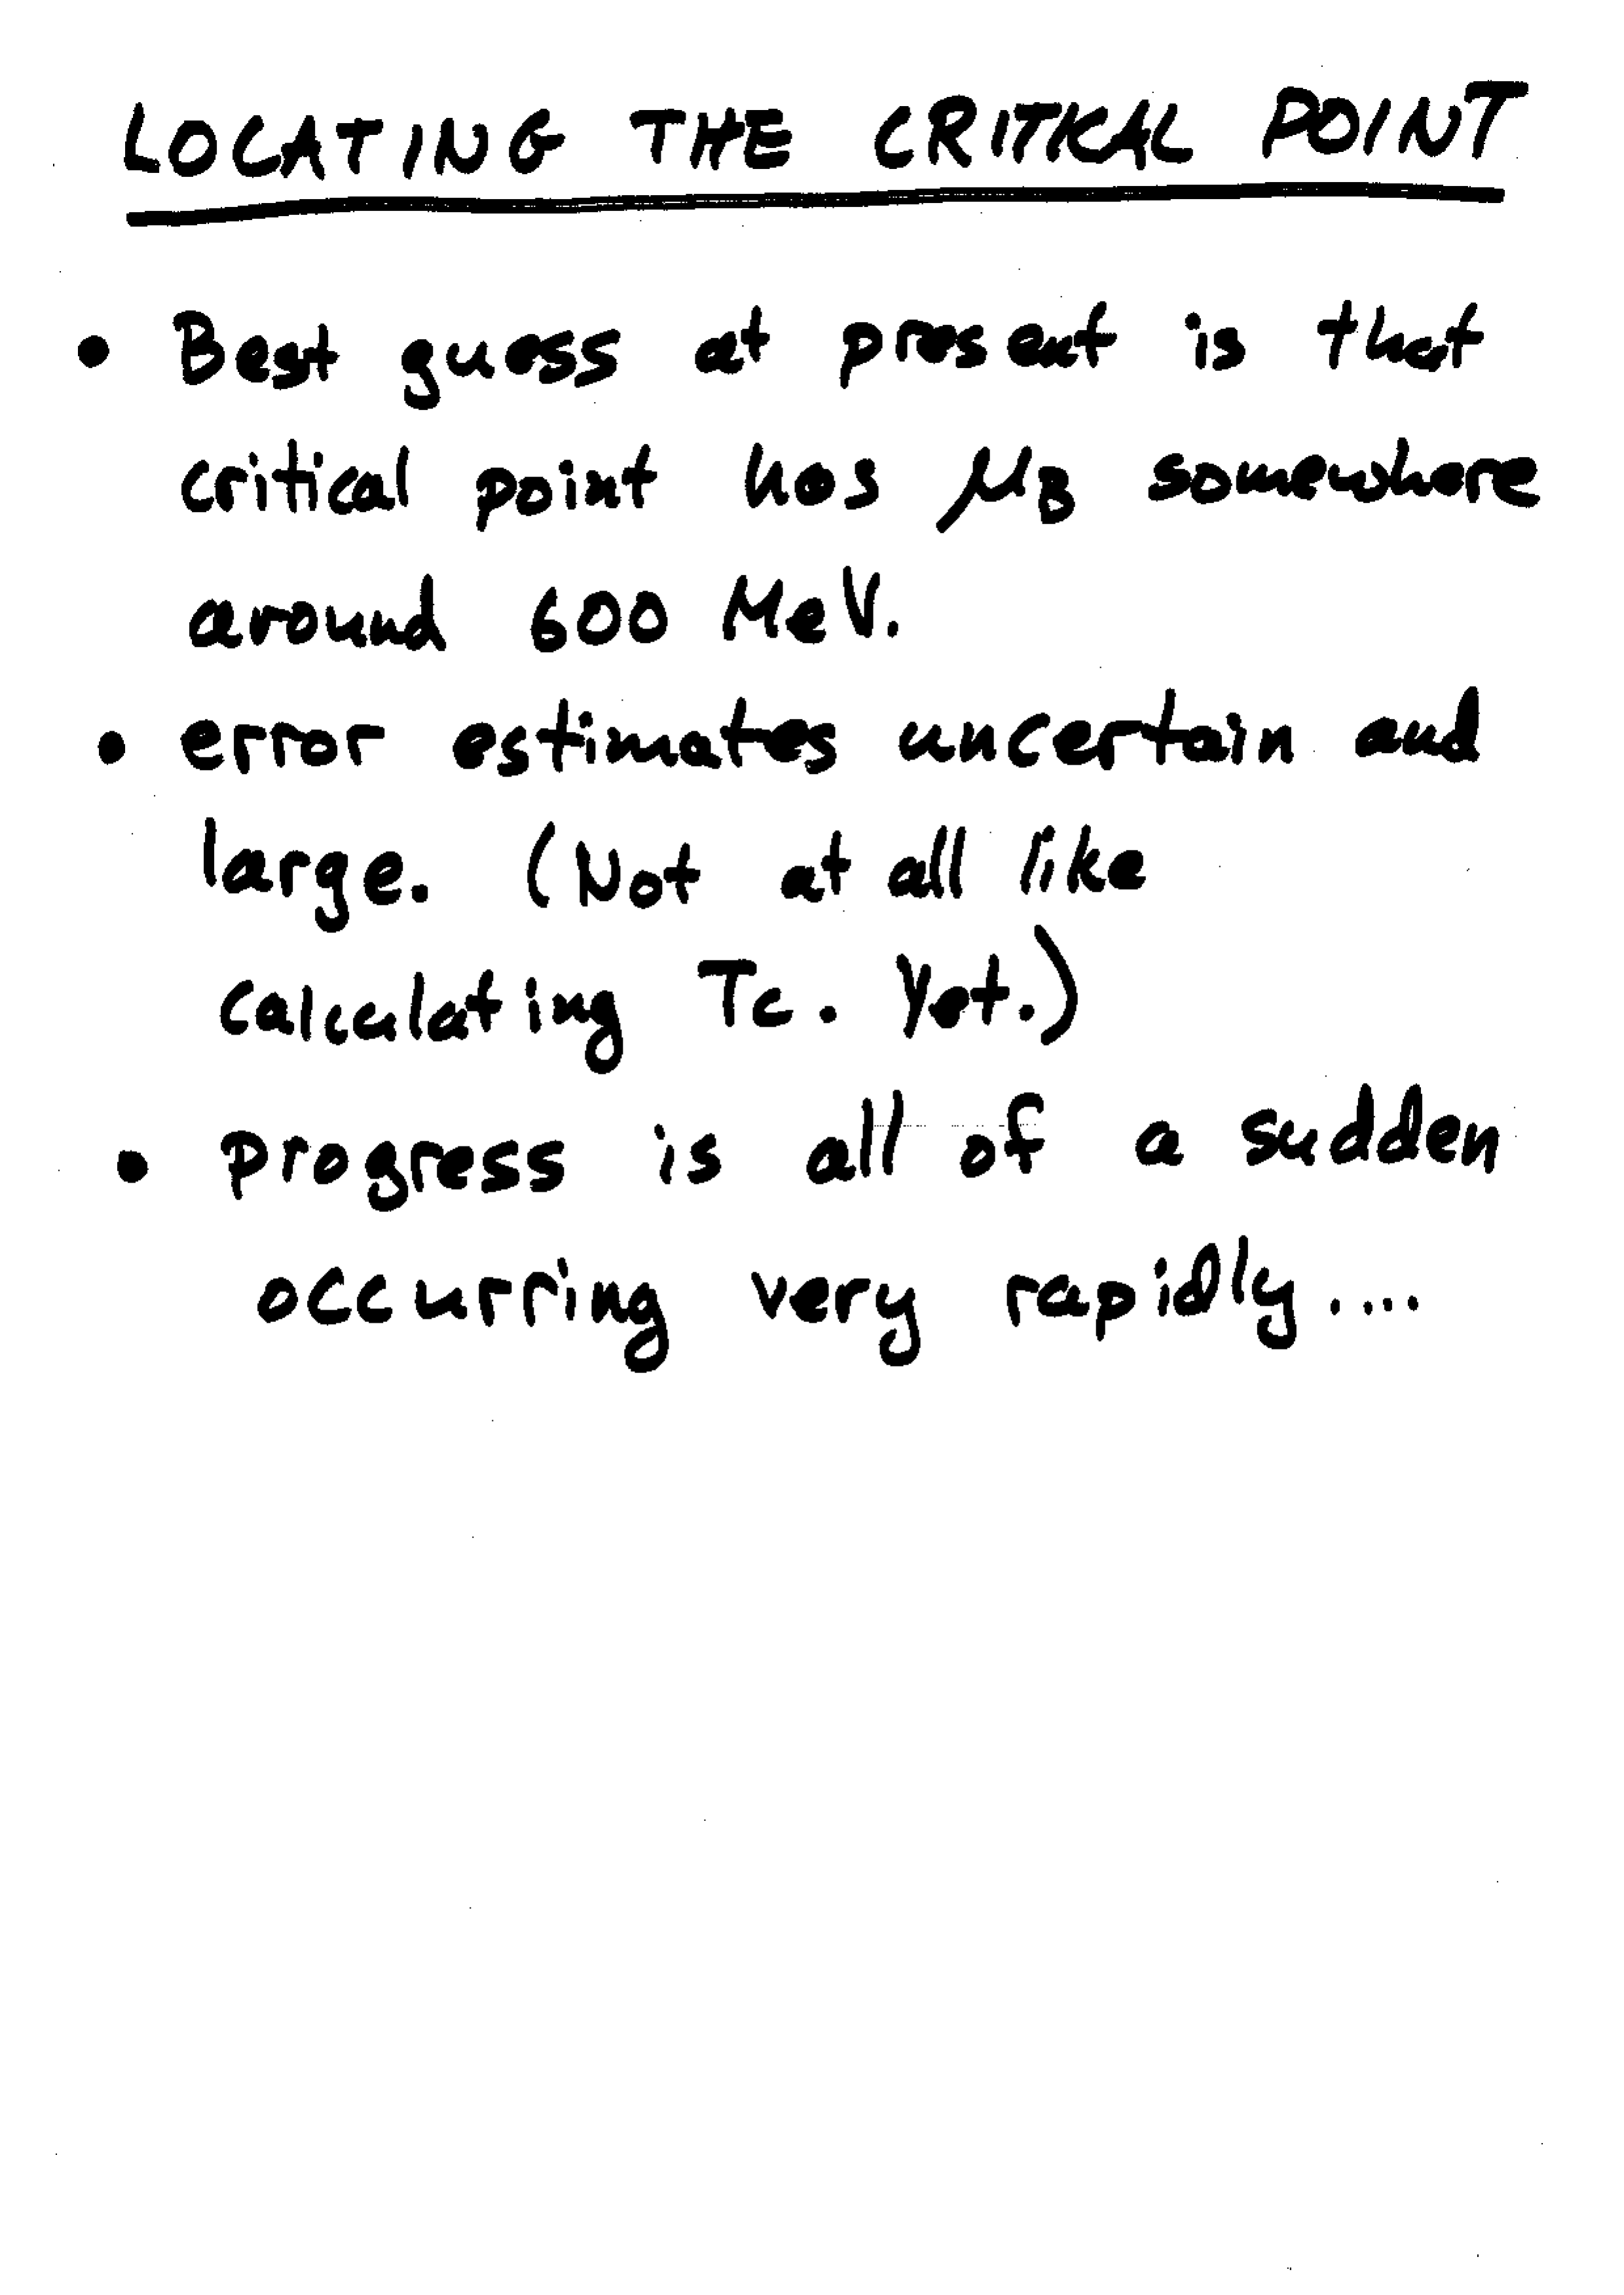 LOCATING THE CRITICAL POINT
• Best guess at present is that
critical point has μB somewhere
around 600 MeV.
• error estimates uncertain and
large. (Not at all like
calculating Tc. Yet.)
• progress is all of a sudden
occurring very rapidly....